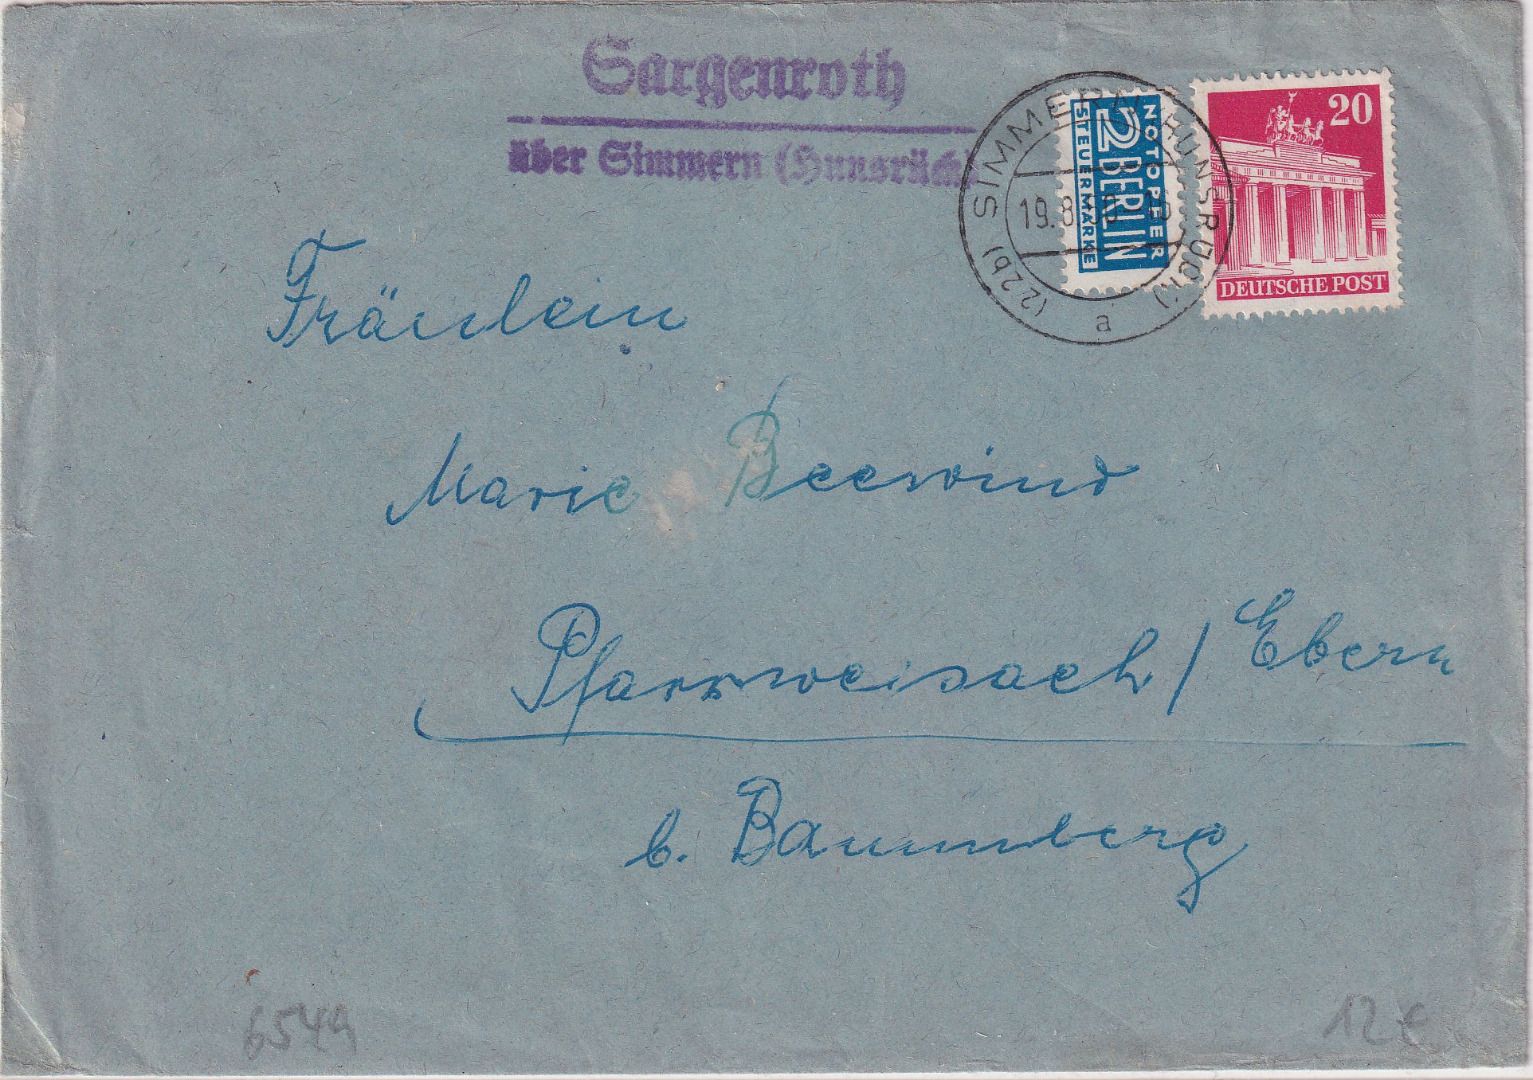 Sargenroth
über Simmern (Hunsrück)
(22b) SIMMERN (HUNSRÜCK)
19.8.50
a
NOTOPFER
2 BERLIN
STEUERMARKE
20
DEUTSCHE POST
Fräulein
Marie Beewind
Pfarrweisach / Ebern
b. Baumberg
6549
12 €